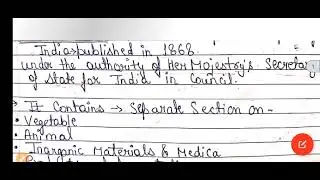 India→published in 1868.
under the authority of Her Majestry's Secretary
of state for India in Council.
→ It Contains → Separate Section on -
• Vegetable
• Animal
• Inorganic Materials & Medica